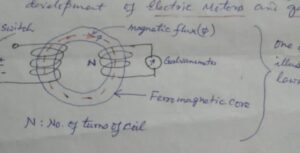 development of Electric Motors and
Switch
magnetic flux(φ)
φ
N
Galvanometer
one
Ferromagnetic core
law
N: No. of turns of coil